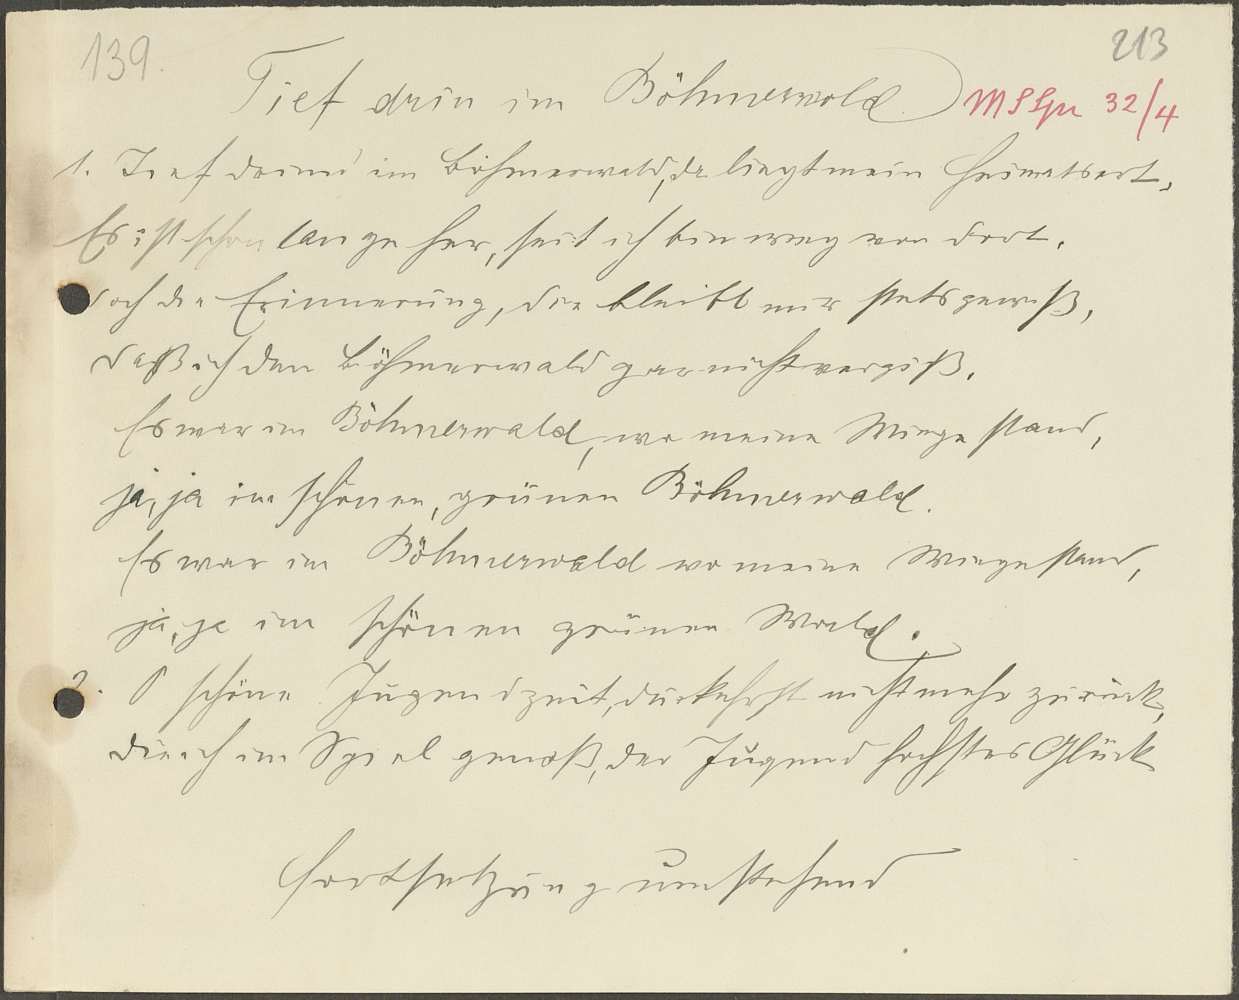 139.
213
Tief drin im Böhmerwald
MSLyn 32/4
1. Tief drinn' im Böhmerwald, da liegt mein Heimatsort,
Es ist schon lange her, seit ich bin weg von dort.
doch die Erinnerung, die bleibt mir stets gewiß,
daß ich den Böhmerwald gar nicht vergiß.
Es war im Böhmerwald, wo meine Wiege stand,
ja, ja im schönen, grünen Böhmerwald.
Es war im Böhmerwald wo meine Wiege stand,
ja, ja im schönen grünen Wald.
2. O schöne Jugendzeit, du kehrst nicht mehr zurück,
die ich im Spiel genoß, der Jugend höchstes Glück
Fortsetzung umstehend